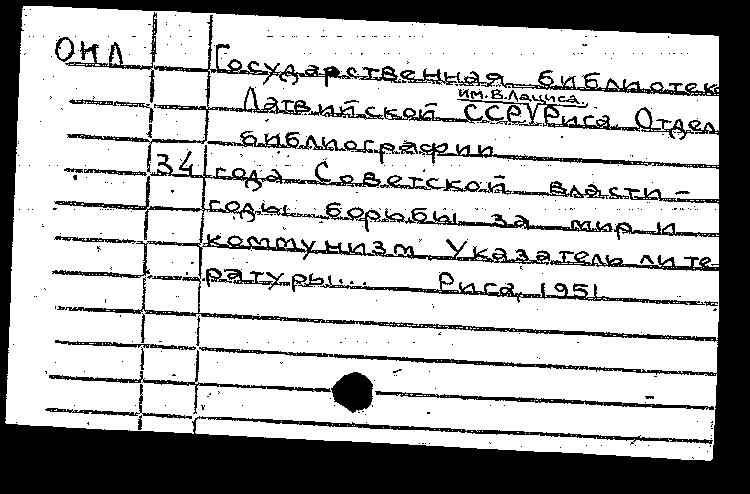 ОНЛ Государственная библиотек
им. В. Лациса
Латвийской ССР√Рига. Отдел
библиографии
34 года Советской власти –
годы борьбы за мир и
коммунизм. Указатель лите
ратуры... Рига, 1951.